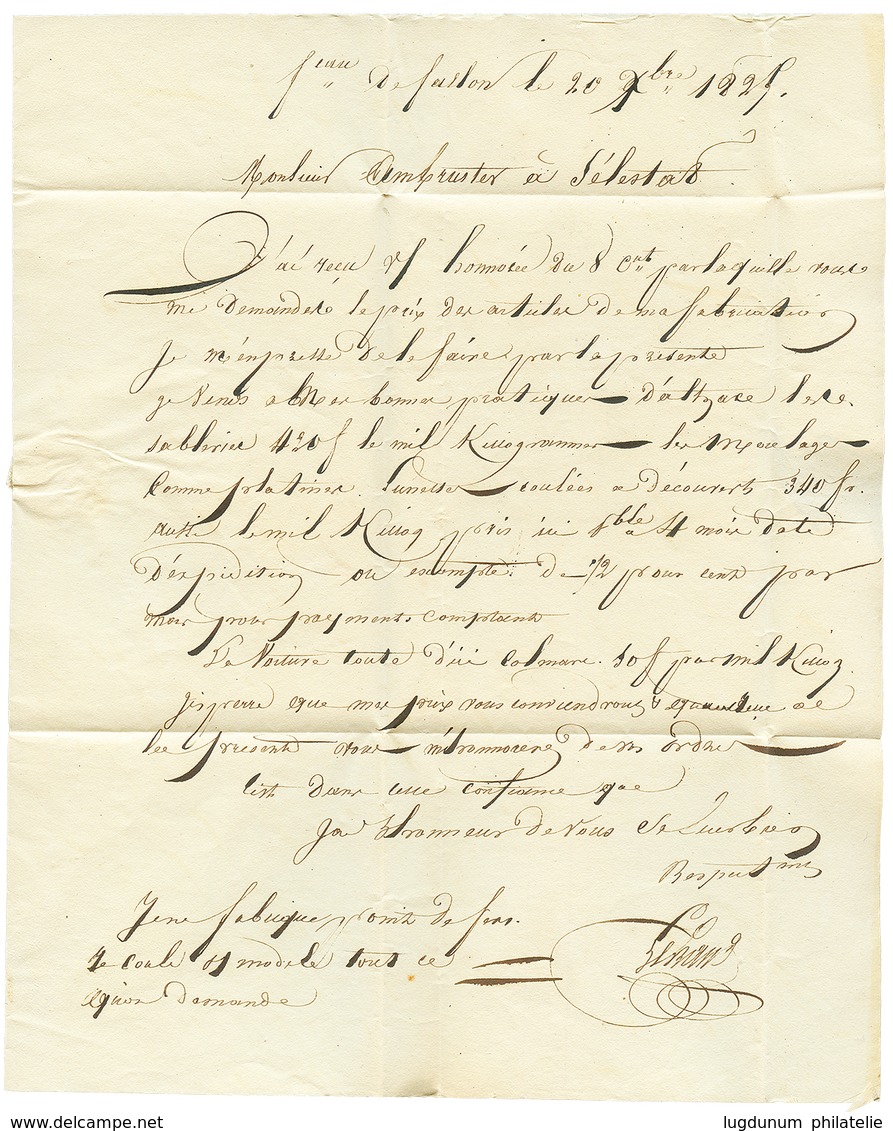 f^eau de fallon le 20 X^bre 1825.
Monsieur Ambruster à Sélestat
J'ai recu vf honnorée du 8 C^nt par laquelle vous
me demandés le prix des articles de ma fabrication
Je m'enpresse de le faire par la presente
je vends a Mes bonnes pratiques d'altzace les
sabliries 420 f le mil Killogrammes les Moulages
Comme platines lunettes coulées a découvert 340 fr.
aussi le mil Killog pris ici p^ble a 4 mois date
D'éxpidition ou escompte de 1/2 pour cent par
mois pour payment comptant
La Voiture coute d'ici Colmare 50 f par mil Killog
J'esperre que mes prix vous conviendront & que
la presente vous m'honnorere de vos ordres
C'est dans cette confiance que
Jai L'honneur de Vous Saluer bien
Respect^mt
Je ne fabrique point de fers.
Je coule et modele tout ce
qu'on demande
lugdunum philatelie